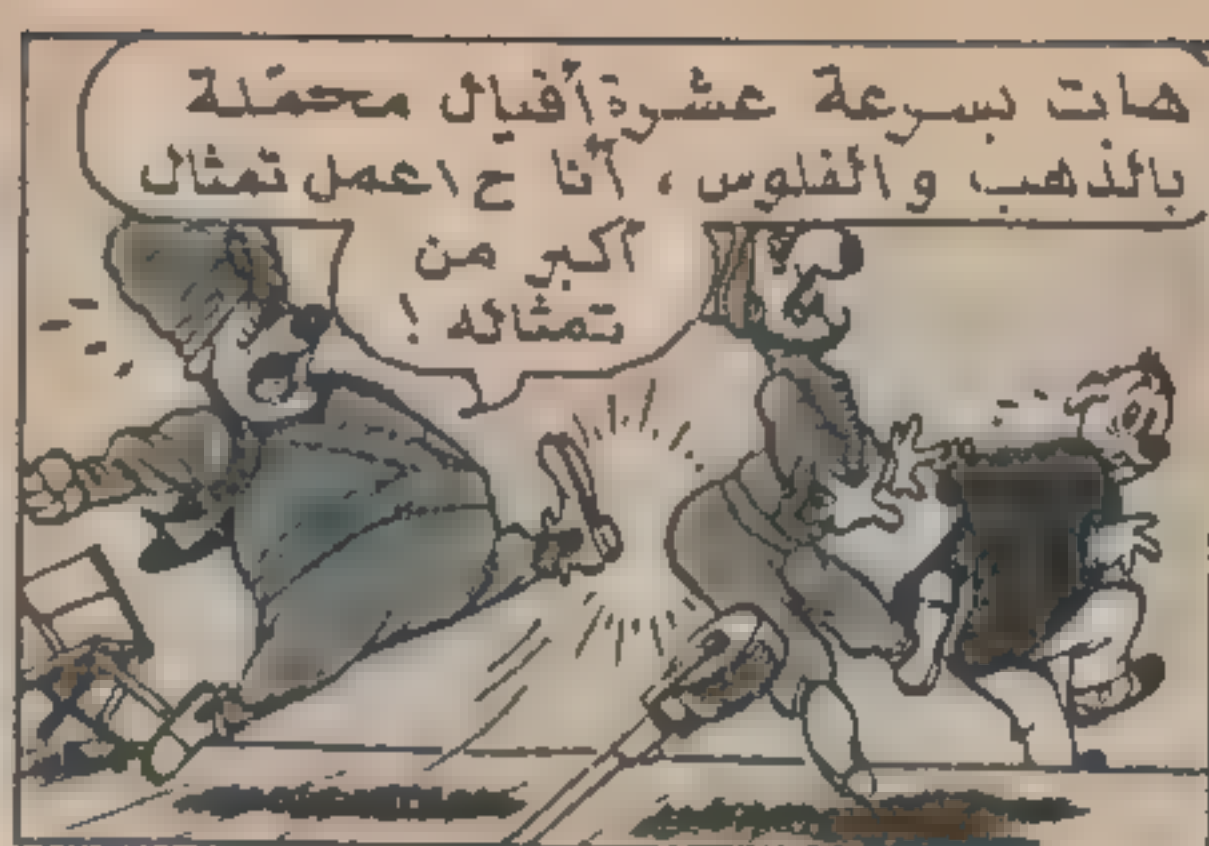 هات بسرعة عشرة أفيال محمّلة
بالذهب والفلوس، أنا ح اعمل تمثال
أكبر من
تمثاله !